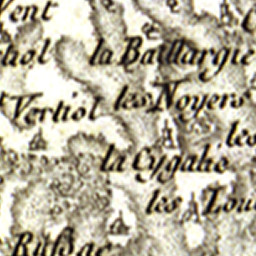 Vent
la Baillargie
les Noyers
Vertiol
les
la Cygalie
les Lou
Rußac